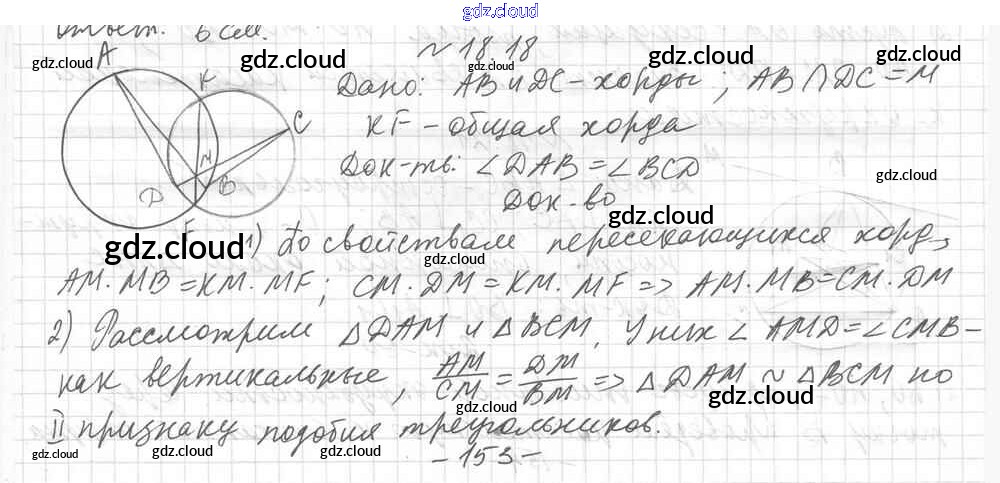 gdz.cloud
Ответ. 6 см.
№ 18.18
gdz.cloud gdz.cloud gdz.cloud
Дано: AB и DC - хорды; AB ∩ DC = M
gdz.cloud
KF - общая хорда
Док-ть: ∠DAB = ∠BCD
gdz.cloud
Док-во
gdz.cloud gdz.cloud gdz.cloud
1) По свойствам пересекающихся хорд,
AM·MB = KM·MF; CM·DM = KM·MF => AM·MB = CM·DM
2) Рассмотрим △DAM и △BCM, У них ∠AMD = ∠CMB -
как вертикальные, AM/CM = DM/BM => △DAM ~ △BCM по
gdz.cloud gdz.cloud
II признаку подобия треугольников.
gdz.cloud gdz.cloud gdz.cloud
- 153 -
gdz.cloud
A
K
C
M
D
B
F